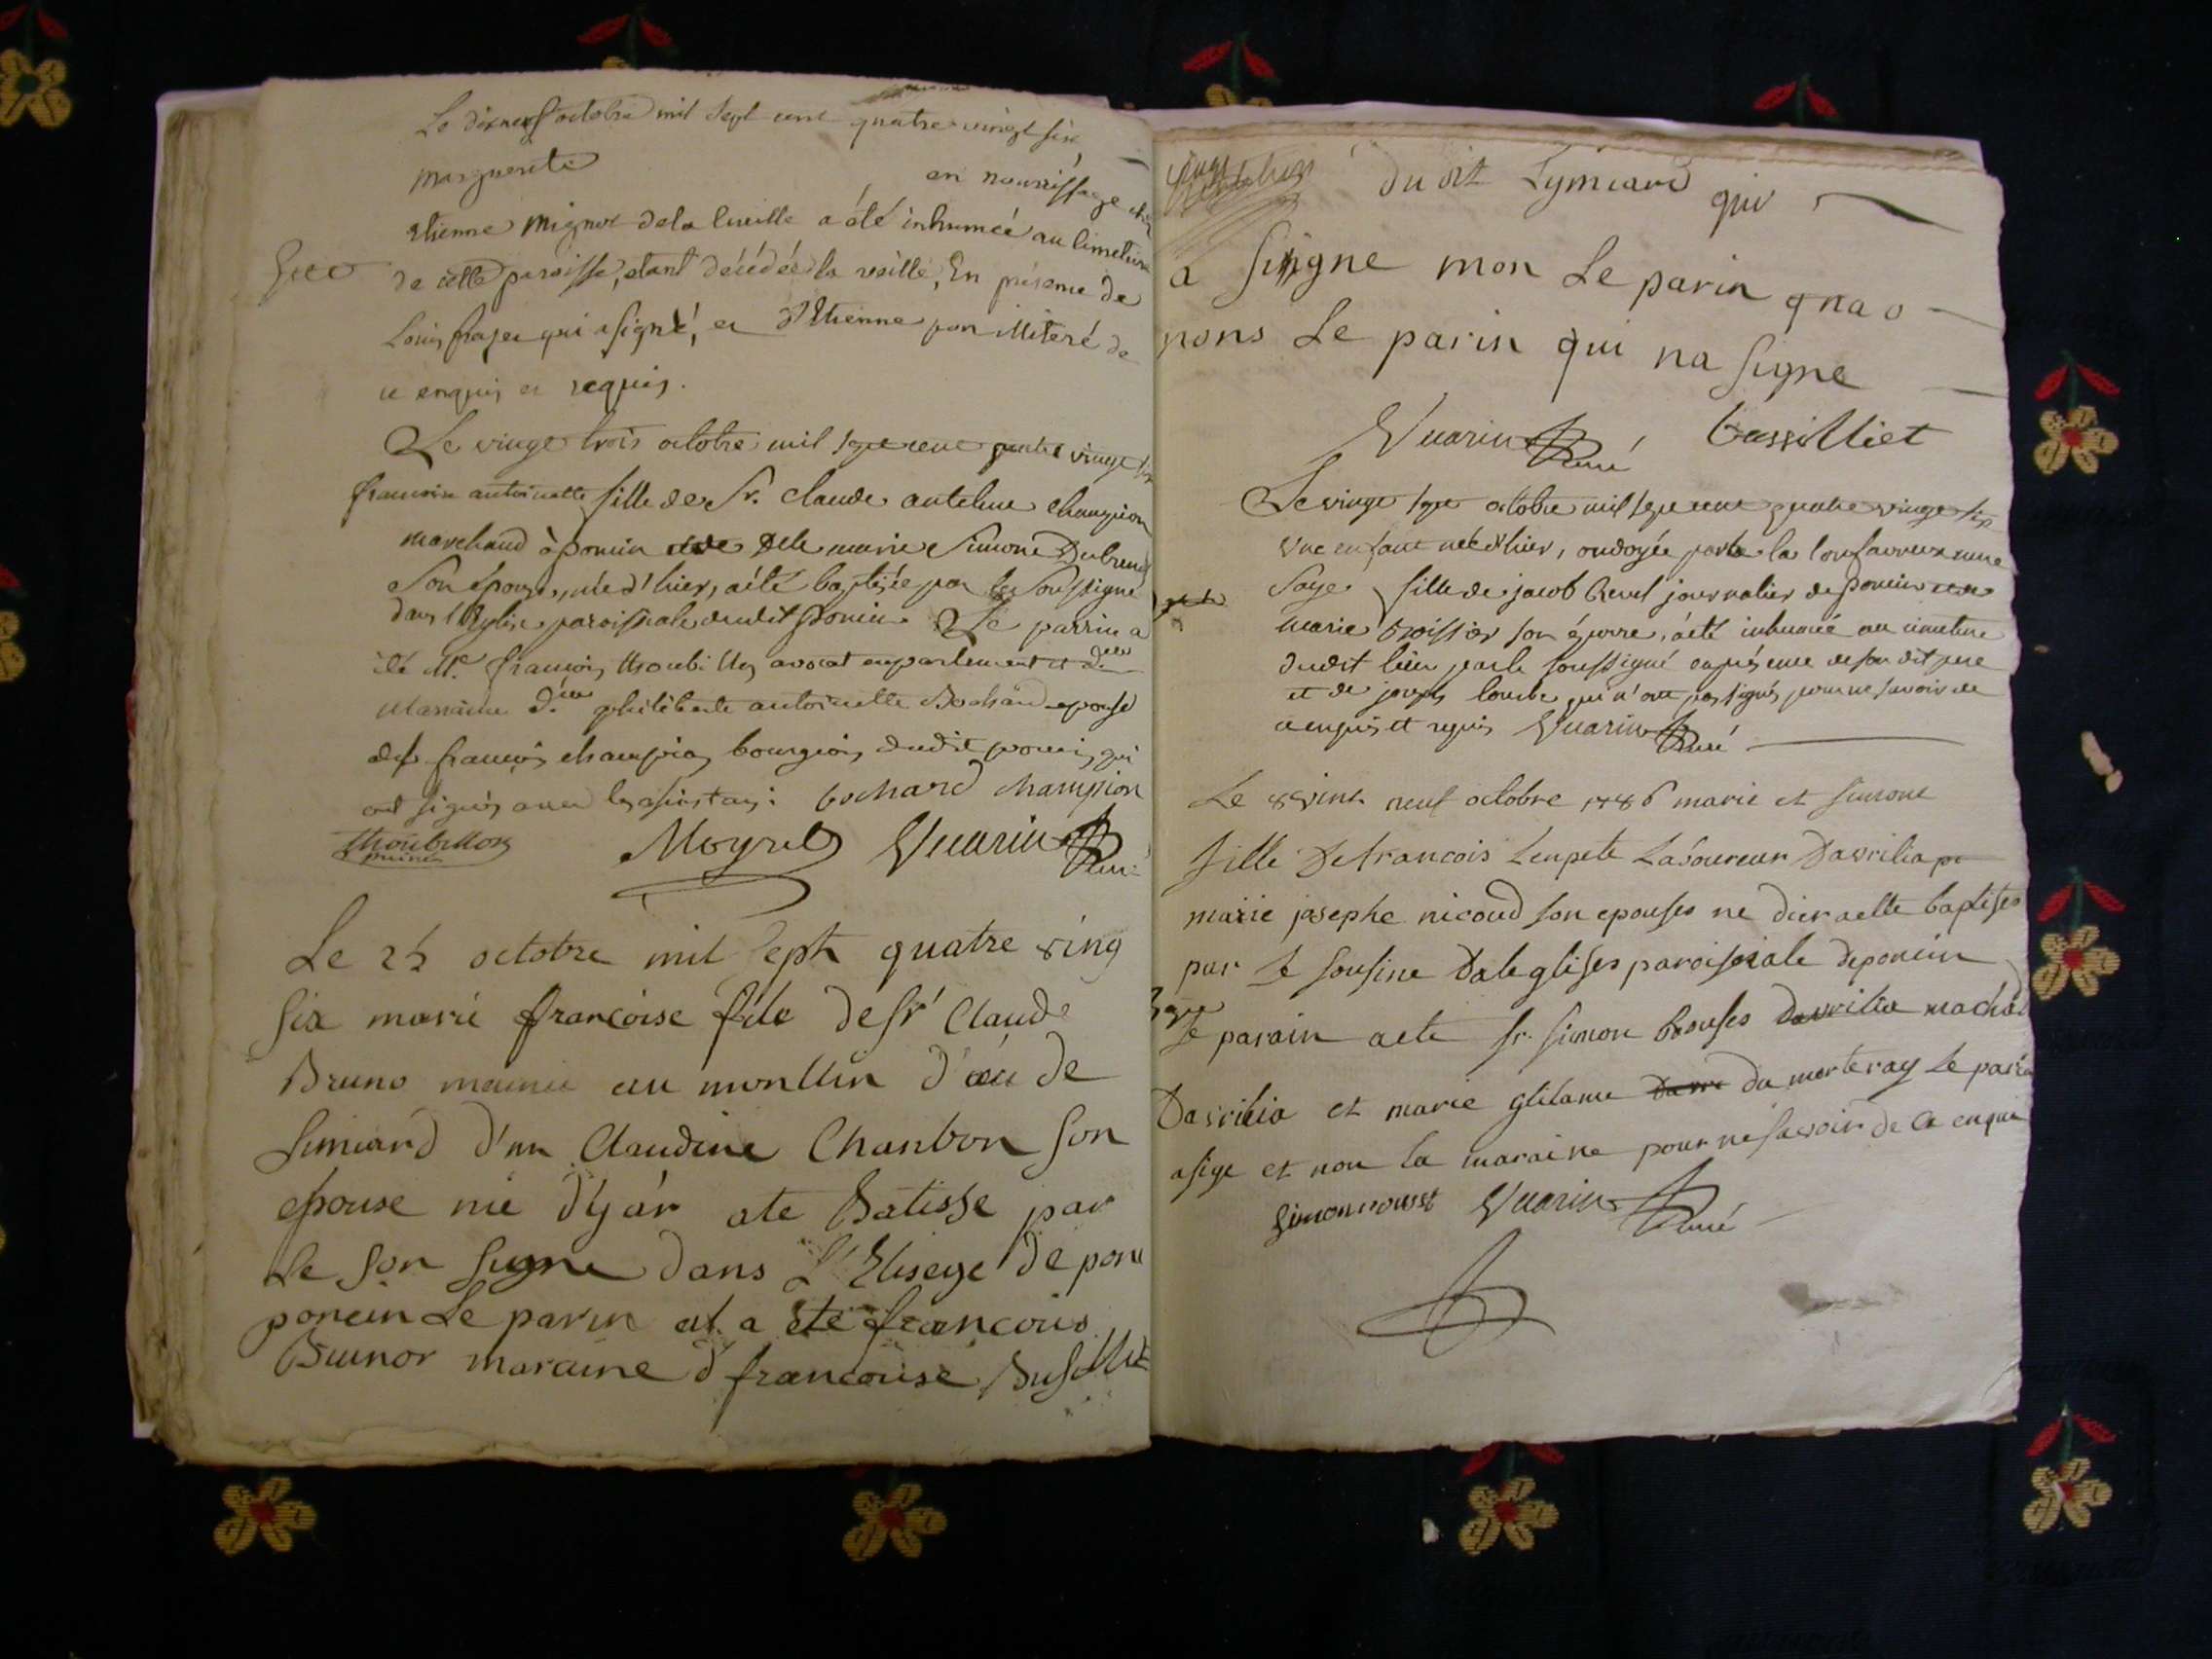 Le dixneuf octobre mil sept cent quatre vingt six
marguerite en nourrissage chez
etienne mignot de la Cueille a été inhumée au Cimetiere
de cette paroisse, etant décédée la veille, En présence de
Louis qui a signé, et d'Etienne pour illiteré de
ce enquis et requis.
Le vingt trois octobre mil sept cent quatre vingt six
francoise antoinette fille de Sr. claude antelme champion
marchand à poncin et de Delle marie Simone Dubreuil
Son épouse, née d'hier, a été baptisée par le Soussigné
dans l'Eglise paroissiale dudit Poncin. Le parrin a
été Mr. françois avocat en parlement et d.lle
Marraine d.lle philiberte antoinette Bochard epouse
de françois champion bourgeois dudit poncin, qui
ont signés avec les assistans: bochard champion
Moyret Vuarin Curé
Le 25 octobre mil Sept quatre ving
six marie françoise file de Sr Claude
Bruno meunie au moullin d'au de
Simiard d'un Claudine Chanbon Son
epouse nie d'yar ate Batisse par
Le Son Signe dans L'Elisege de pon
poncin Le parin at a Ete francois
Brunor maraine d francoise
du dit Lymiard qui
a Singne mon Le parin qna o
nons Le parin qui na Signe
Vuarin Curé bassilliet
Le vingt sept octobre mil sept cent quatre vingt six
une enfant née d'hier, ondoyée par la
Sage fille de jacob journalier de poncin et de
marie son épouse, a été inhumée au cimetiere
dudit lieu par le soussigné en présence de son dit pere
et de joseph qui n'ont pas signés pour ne savoir de
ce enquis et requis Vuarin Curé
Le vint neuf octobre 1786 marie et simone
fille De francois Lenpete Laboureur Davrilia et
marie josephe nicoud son epouses ne dier aette baptises
par le sousine Daleglises paroisiale deponcin
Le parain aete sr. simon Davrilia
Davrilia et marie du morteray Le parain
asige et non la maraine pour ne savoir de Ce enqui
Simon rousset Vuarin Curé